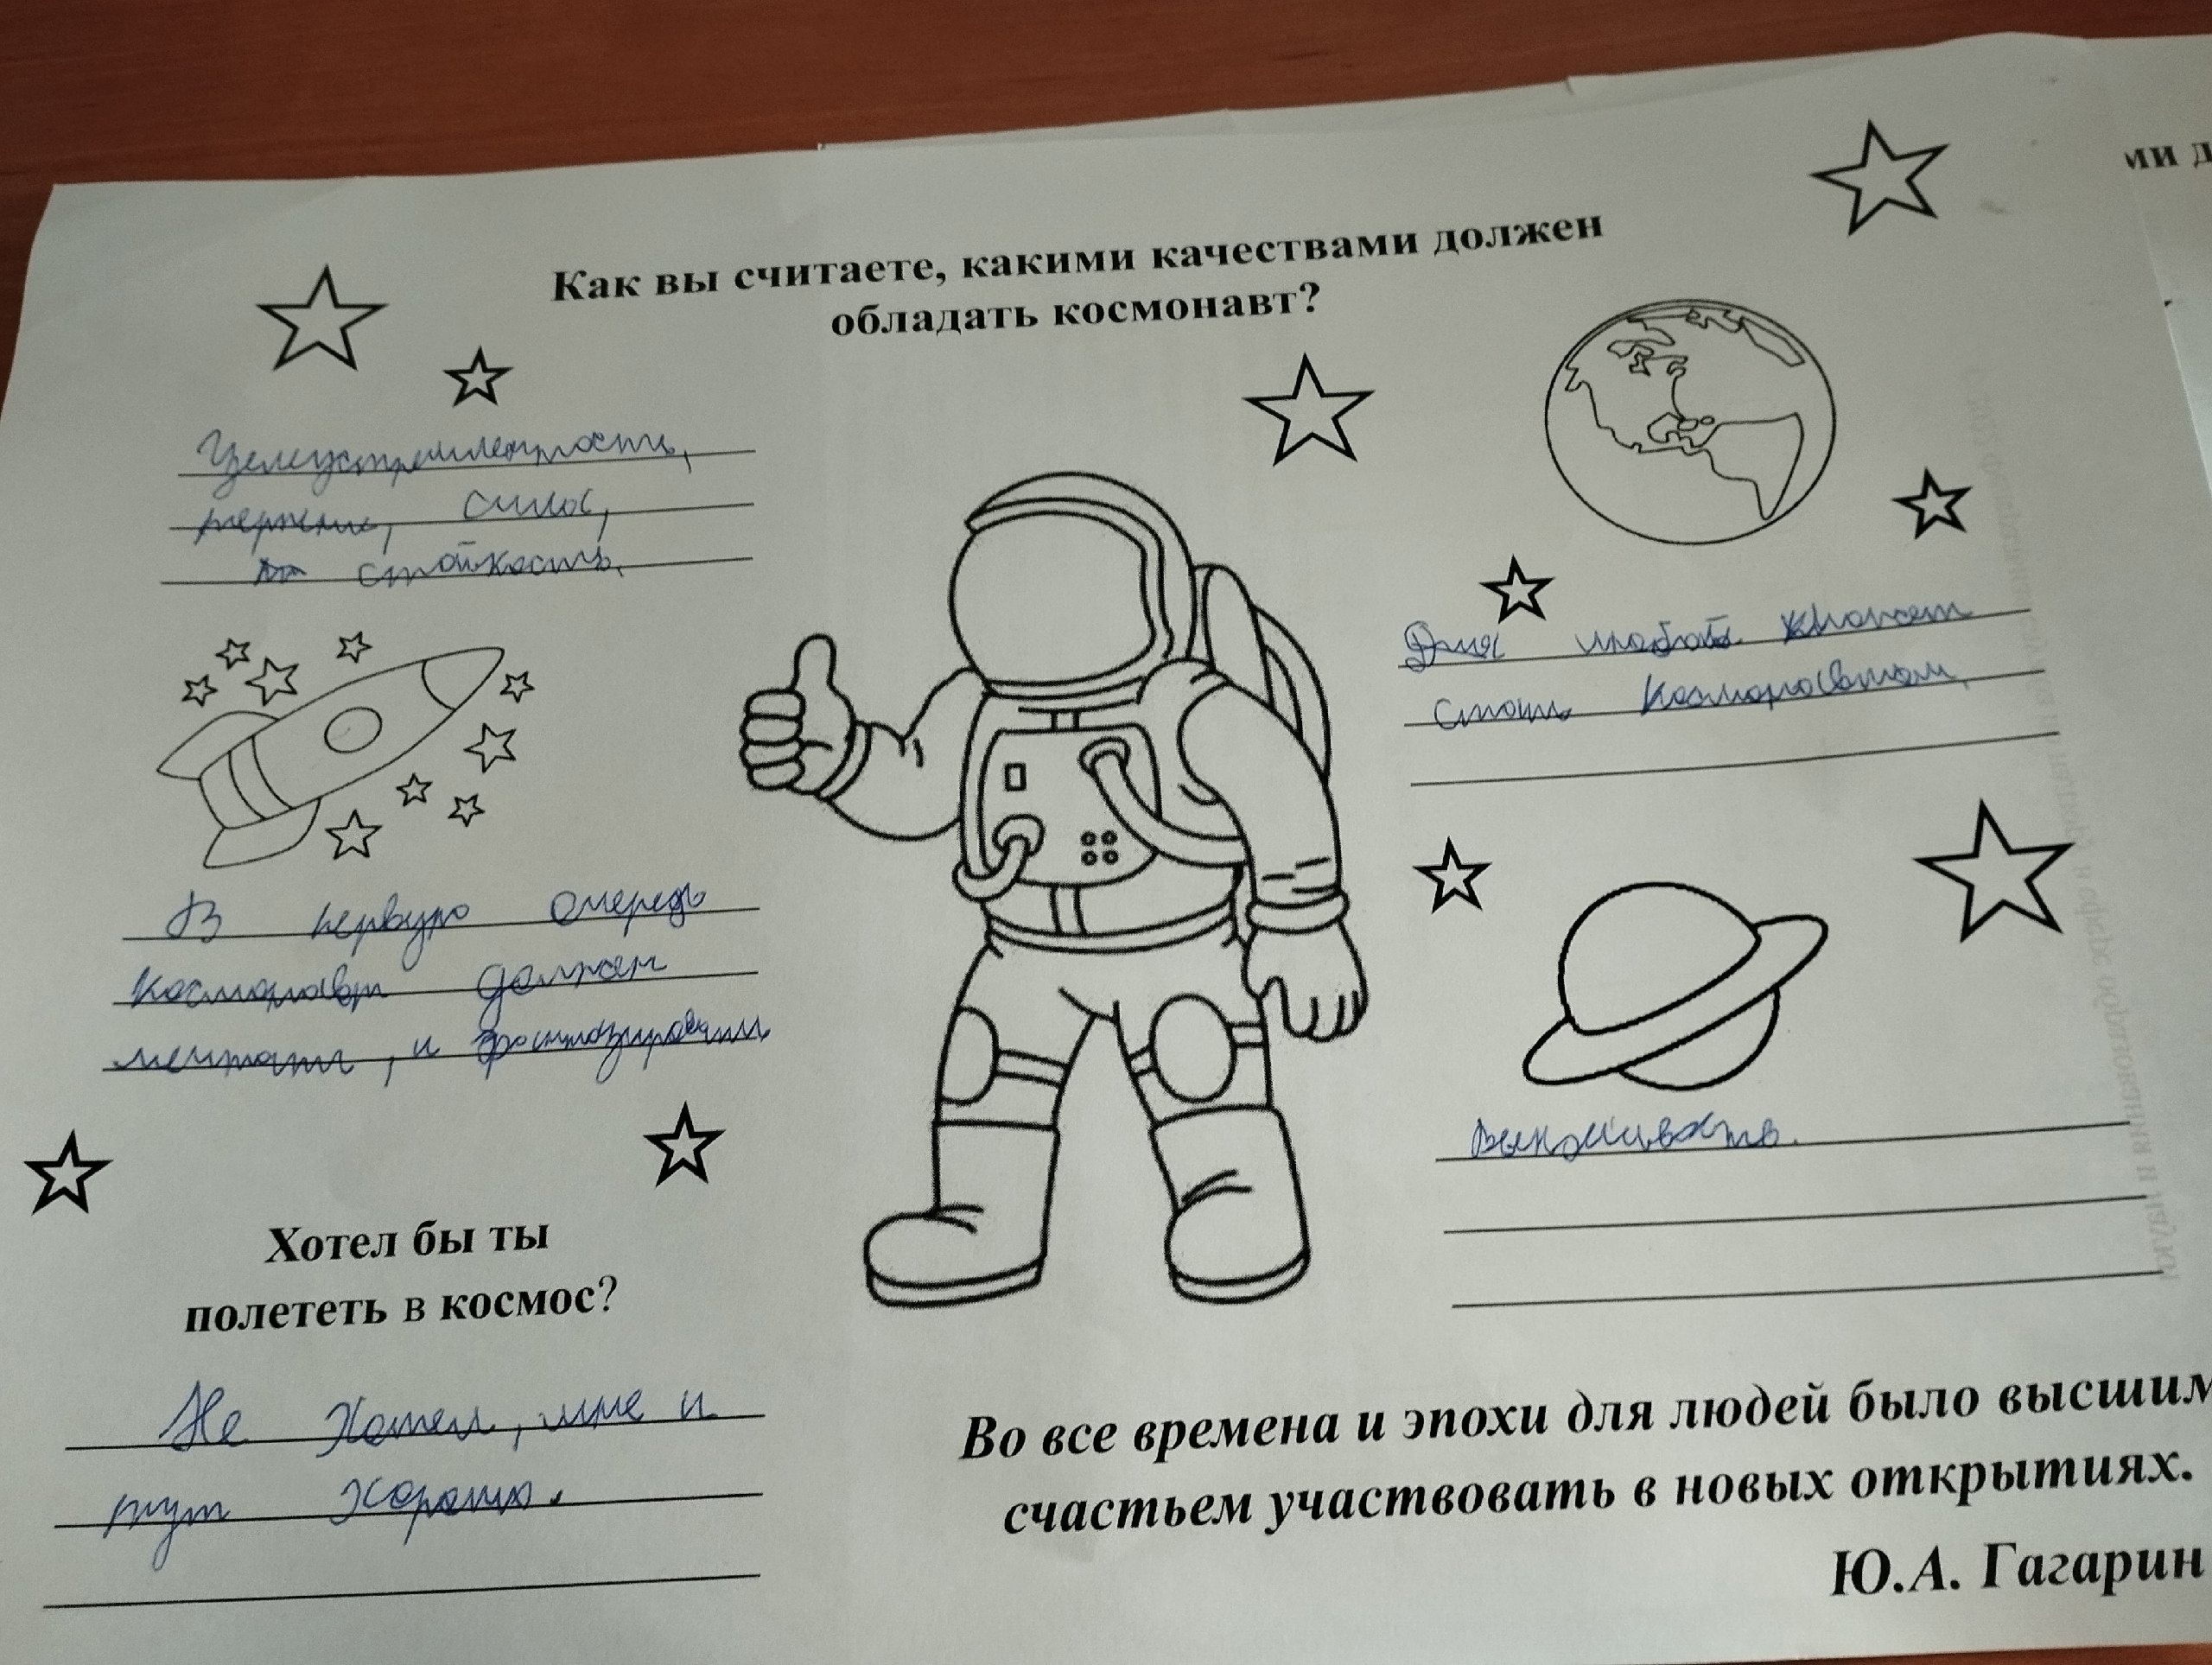 ми д
Как вы считаете, какими качествами должен
обладать космонавт?
Целеустремленность,
терпение, сила,
стойкость.
В первую очередь
космонавт должен
мечтать, и фантазировать
Хотел бы ты
полететь в космос?
Не Хотел, мне и
тут Хорошо.
может
стать Космонавтом.
Выносливость.
Во все времена и эпохи для людей было высшим
счастьем участвовать в новых открытиях.
Ю.А. Гагарин